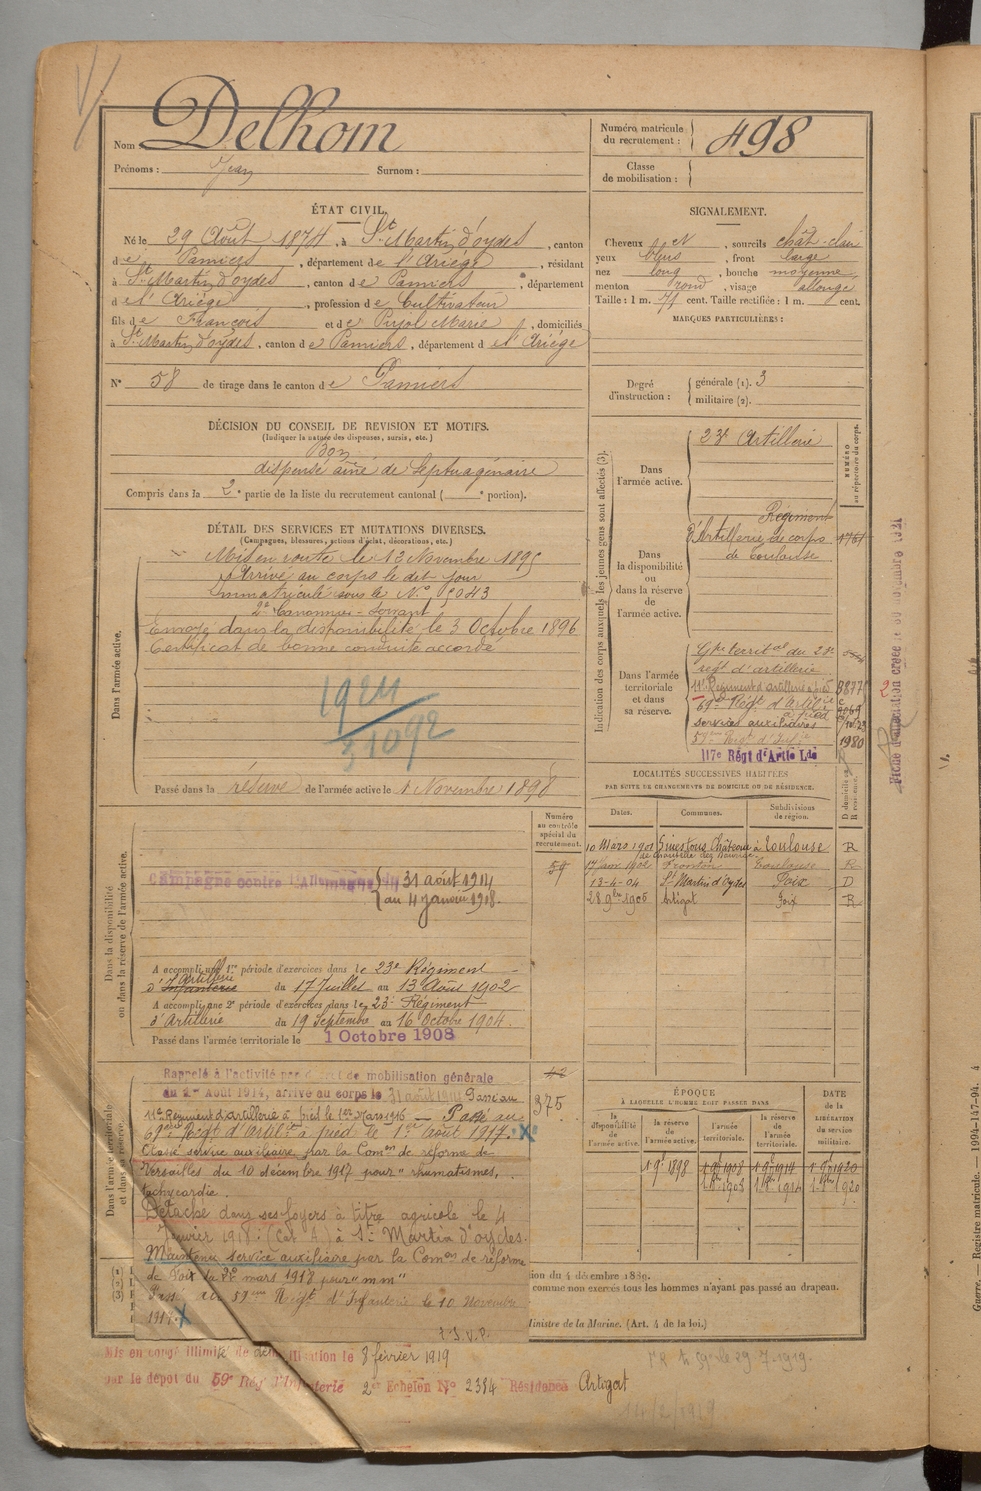 Nom : Delhom
Prénoms : Jean Surnom :
Numéro matricule du recrutement : 498
Classe de mobilisation :
ÉTAT CIVIL.
Né le 29 Août 1874, à St Martin d'oydes, canton
de Pamiers, département de l'Ariège, résidant
à St Martin d'oydes, canton de Pamiers, département
de l'Ariège, profession de Cultivateur
fils de François et de Pujol Marie, domiciliés
à St Martin d'oydes, canton de Pamiers, département de l'Ariège
N° 58 de tirage dans le canton de Pamiers
SIGNALEMENT.
Cheveux N, sourcils chât-clair
yeux bleus, front large
nez long, bouche moyenne,
menton rond, visage allongé
Taille : 1 m. 71 cent. Taille rectifiée : 1 m. cent.
MARQUES PARTICULIÈRES :
Degré d'instruction : générale (1). 3
militaire (2).
DÉCISION DU CONSEIL DE REVISION ET MOTIFS.
(Indiquer la nature des dispenses, sursis, etc.)
Bon
dispensé aîné de Septuagénaire
Compris dans la 2e partie de la liste du recrutement cantonal ( e portion).
DÉTAIL DES SERVICES ET MUTATIONS DIVERSES.
(Campagnes, blessures, actions d'éclat, décorations, etc.)
Dans l'armée active.
Mis en route le 12 Novembre 1895
Arrivé au corps le dit jour
immatriculé sous le N° 5043
2e Canonnier-Servant
Envoyé dans la disponibilité le 3 Octobre 1896
Certificat de bonne conduite accordé
1924
31092
Passé dans la réserve de l'armée active le 1 Novembre 1898
Indication des corps auxquels les jeunes gens sont affectés (3).
NUMÉRO au répertoire du corps.
Dans l'armée active.
23e Artillerie
Dans la disponibilité ou dans la réserve de l'armée active.
Régiment
d'Artillerie de corps 1751
de Toulouse
Dans l'armée territoriale et dans sa réserve.
Gpe territal du 23e
régt d'artillerie
11e Régiment d'artillerie à pied
69e Régt d'Artilie à pied
services auxiliaires
59me Régt d'Infie 1980
117e Régt d'Artie Lde
LOCALITÉS SUCCESSIVES HABITÉES
PAR SUITE DE CHANGEMENTS DE DOMICILE OU DE RÉSIDENCE.
Dates. Communes. Subdivisions de région. D domicile ou R résidence.
10 Mars 1901 Toulouse R
1902 Fronton Toulouse R
13-4-04 St Martin d'Oydes Foix D
28 9bre 1905 Artigat Foix R
Numéro au contrôle spécial du recrutement.
59
Dans la disponibilité ou dans la réserve de l'armée active.
Campagne contre l'Allemagne du 31 août 1914
au 4 janvier 1918.
A accompli une 1re période d'exercices dans le 23e Régiment
d'Infanterie Artillerie du 17 Juillet au 13 Août 1902
A accompli une 2e période d'exercices dans le 23e Régiment
d'Artillerie du 19 Septembre au 16 Octobre 1904.
Passé dans l'armée territoriale le 1 Octobre 1908
Dans l'armée territoriale et dans sa réserve.
Rappelé à l'activité par décret de mobilisation générale
du 2 Août 1914, arrivé au corps le 31 août 1914 Passé au
11e Régiment d'artillerie à pied le 1er Mars 1916 — Passé au
69me Régt d'Artilie à pied le 1er Août 1917.
Classé service auxiliaire par la Comon de réforme de
Versailles du 10 décembre 1917 pour "rhumatismes,
tachycardie.
Détaché dans ses foyers à titre agricole le 4
Janvier 1918. (Cat A) à St Martin d'oydes.
Maintenu service auxiliaire par la Comon de réforme
de Foix du 22 mars 1918 pour "mm"
Passé au 59me Régt d'Infanterie le 10 Novembre
T.S.V.P.
42
375
ÉPOQUE
À LAQUELLE L'HOMME DOIT PASSER DANS
la disponibilité de l'armée active. la réserve de l'armée active. l'armée territoriale. la réserve de l'armée territoriale. DATE de la LIBÉRATION du service militaire.
1 9bre 1898 1 9bre 1908 1 9bre 1914 1 9bre 1920
1 8bre 1908 1 8bre 1914 1 8bre 1920
ion du 4 décembre 1889.
comme non exercés tous les hommes n'ayant pas passé au drapeau.
Ministre de la Marine. (Art. 4 de la loi.)
Mis en congé illimité de démobilisation le 8 février 1919
par le dépôt du 59e Rég d'Infanterie 2e Echelon N° 2384 Résidence Artigat
Guerre. — Registre matricule. — 1994-147-94. 4